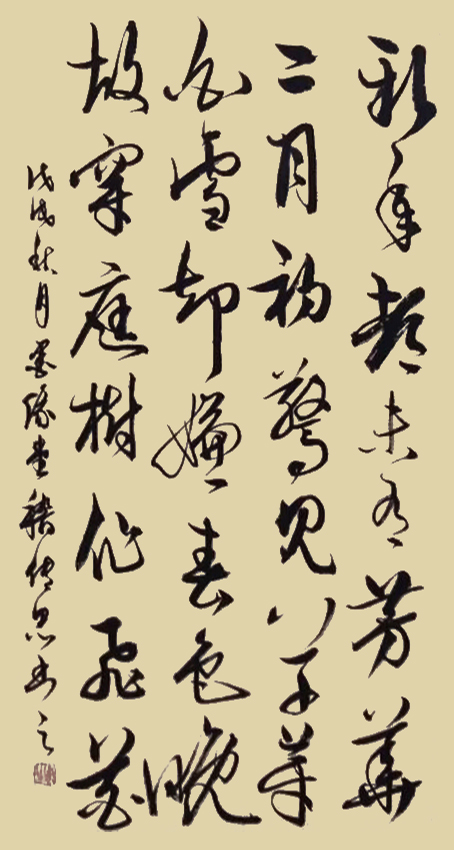 新年都未有芳華
二月初驚見草芽
白雪却嫌春色晚
故穿庭樹作飛花
戊戌秋月墨緣堂